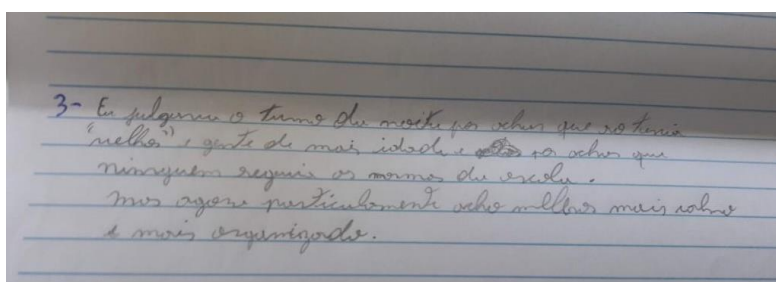 3- Eu julgava o turno da noite por achar que so teria
"velho" e gente de mais idade e por achar que
ninguem seguia as normas da escola.
Mas agora particulamente acho melhor mais calmo
e mais organizado.